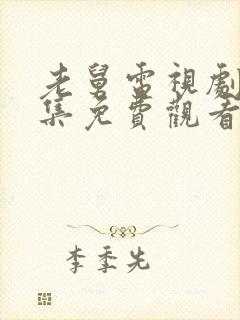 老舅電視劇
集免費觀看
李季先